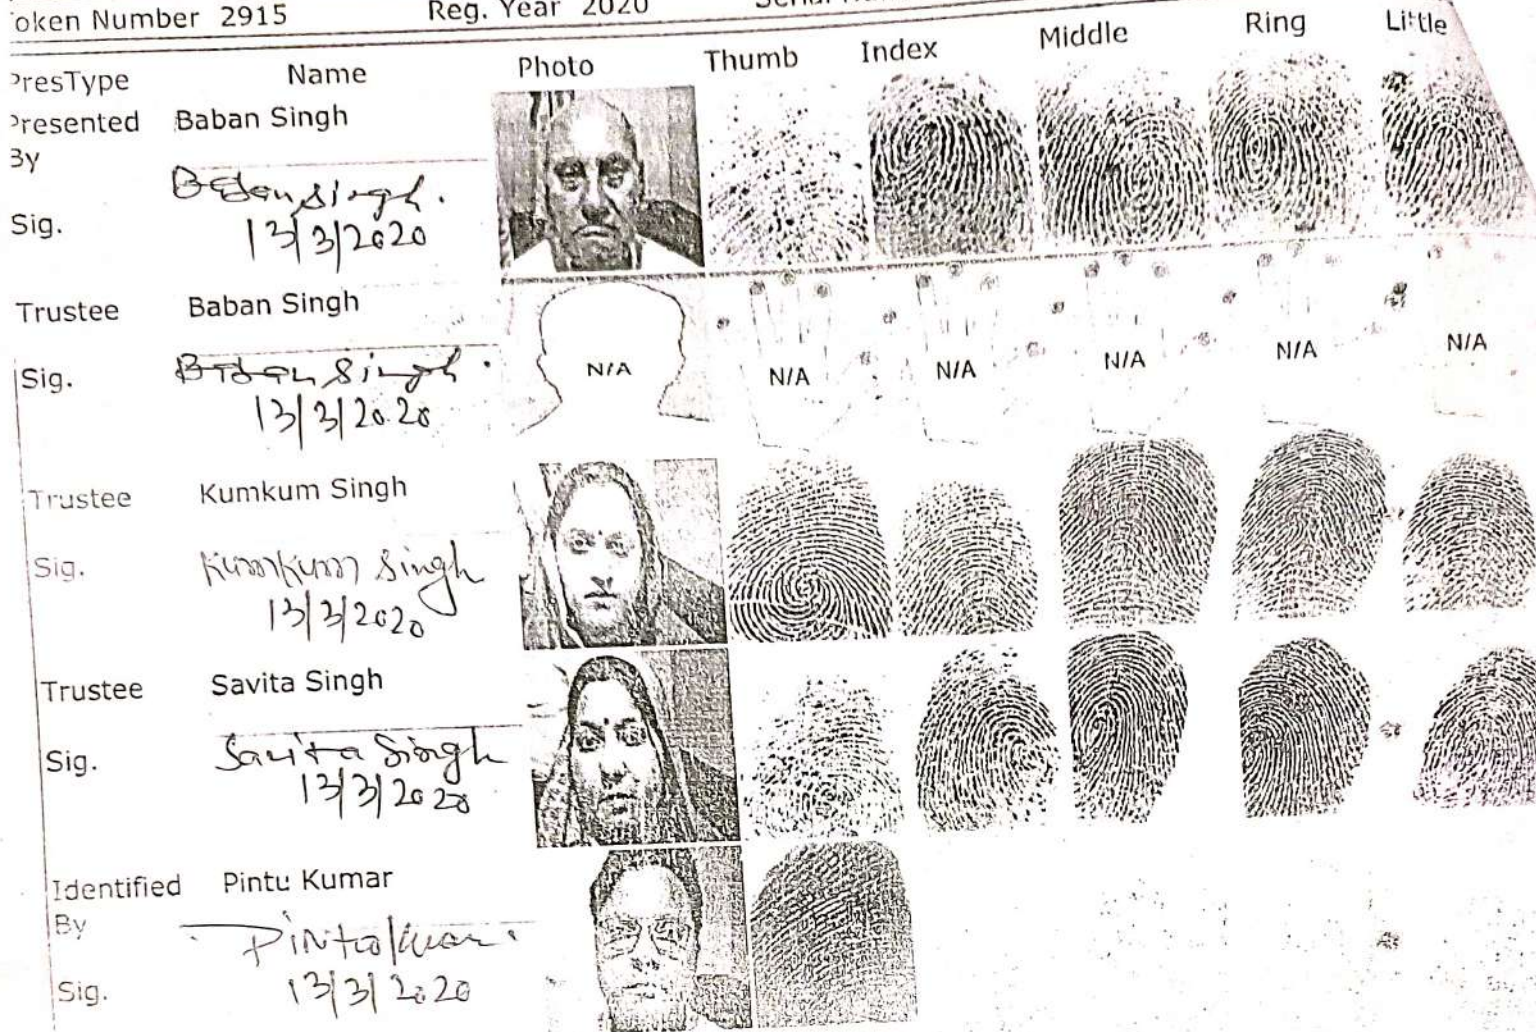 oken Number 2915 Reg. Year 2020
PresType Name Photo Thumb Index Middle Ring Little
Presented Baban Singh
By
Baban Singh.
Sig. 13/3/2020
Trustee Baban Singh
Sig. Baban Singh.
13/3/2020
N/A N/A N/A N/A N/A N/A
Trustee Kumkum Singh
Sig. Kumkum Singh
13/3/2020
Trustee Savita Singh
Sig. Savita Singh
13/3/2020
Identified Pintu Kumar
By
Pintu Kumar
Sig. 13/3/2020